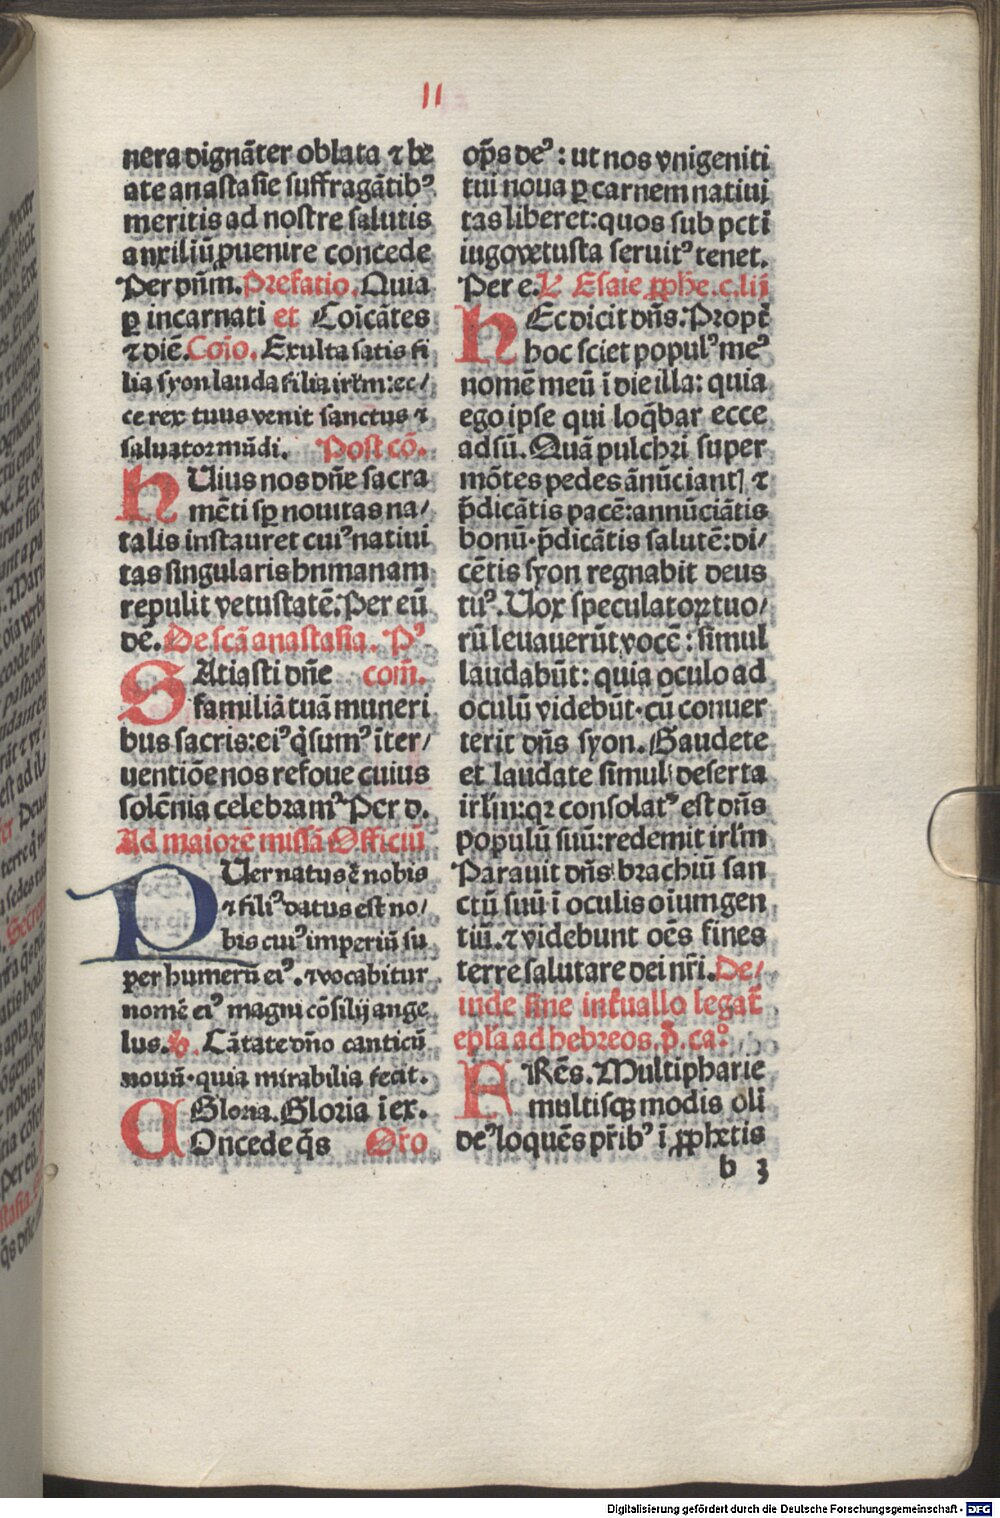 11
nera dignãter oblata ⁊ be
ate anastasie suffragãtibꝰ
meritis ad nostre salutis
auxiliũ ꝓuenire concede
Per dñm. Prefatio. Quia
ꝑ incarnati et Coĩcãtes
⁊ diẽ. Cõio. Exulta satis fi
lia syon lauda filia irlm: ec/
ce rex tuus venit sanctus ⁊
saluator mũdi. Post cõ.
hUius nos dñe sacra
mẽti sꝑ nouitas na/
talis instauret cuiꝰ natiui
tas singularis hnmanam
repulit vetustatẽ. Per eũ
dẽ. De scã anastasia. Pꝰ
SAtiasti dñe com̃.
familiã tuã muneri
bus sacris: eiꝰ q̃sumꝰ iter/
uentiõe nos refoue cuius
solẽnia celebramꝰ Per d.
Ad maiorẽ missã Officiũ
PUer natus ẽ nobis
⁊ filiꝰ datus est no/
bis cuiꝰ imperiũ su
per humerũ eiꝰ. ⁊ vocabitur
nomẽ eiꝰ magni cõsilij ange
lus. ꝟ. Cãtate dño canticũ
nouũ. quia mirabilia fecit.
Gloria. Gloria i ex.
COncede q̃s Oro
op̃s deꝰ: ut nos vnigeniti
tui noua ꝑ carnem natiui
tas liberet: quos sub pcti
iugo vetusta seruitꝰ tenet.
Per e. L Esaie ꝓphe. c. lij
hEc dicit dñs: Propt̃
hoc sciet populꝰ meꝰ
nomẽ meũ ĩ die illa: quia
ego ipse qui loq̃bar ecce
adsũ. Quã pulchri super
mõtes pedes ãnũciantꝭ ⁊
p̃dicãtis pacẽ: annũciãtis
bonũ. p̃dicãtis salutẽ: di/
cẽtis syon regnabit deus
tuꝰ. Uox speculatoꝝ tuo/
rũ leuauerũt vocẽ: simul
laudabũt: quia oculo ad
oculũ videbũt. cũ conuer
terit dñs syon. Gaudete
et laudate simul deserta
irlm̃: qꝛ consolatꝰ est dñs
populũ suũ: redemit irlm̃
Parauit dñs brachiũ san
ctũ suũ ĩ oculis oĩum gen
tiũ. ⁊ videbunt oẽs fines
terre salutare dei nr̃i. De/
inde sine int̃uallo legat̃
epl̃a ad hebreos. p̃. caꝰ
FRẽs. Multipharie
multisqꝫ modis oli
deꝰ loquẽs pr̃ibꝰ ĩ ꝓphetis
b 3
Digitalisierung gefördert durch die Deutsche Forschungsgemeinschaft - DFG